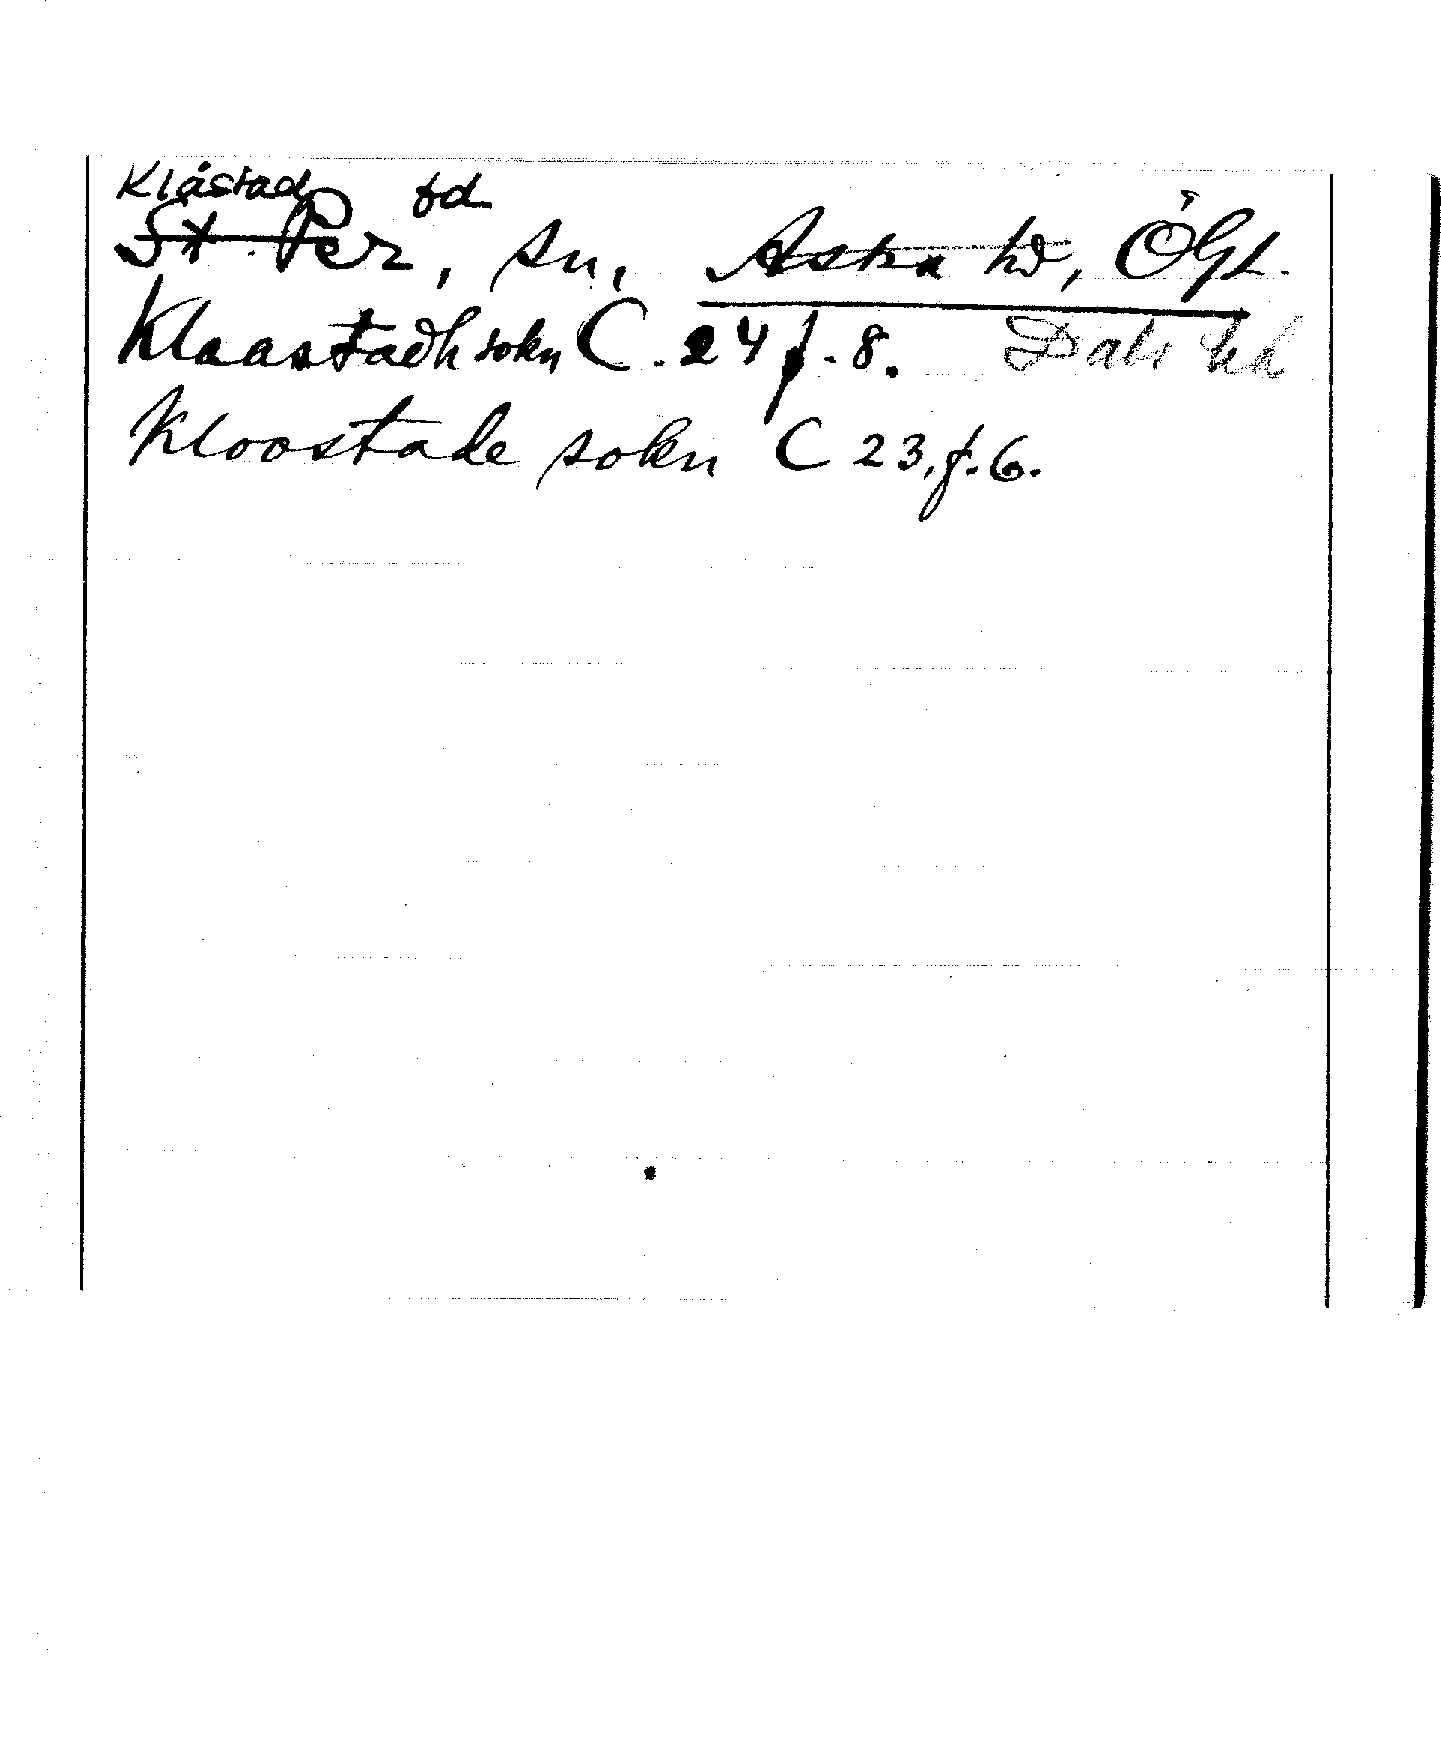 Klåstad fd
St. Per, sn, Aska hd, Ögl.
Klaastadh sokn C. 24 f. 8. Dals hd
Kloostade sokn C 23, f. 6.